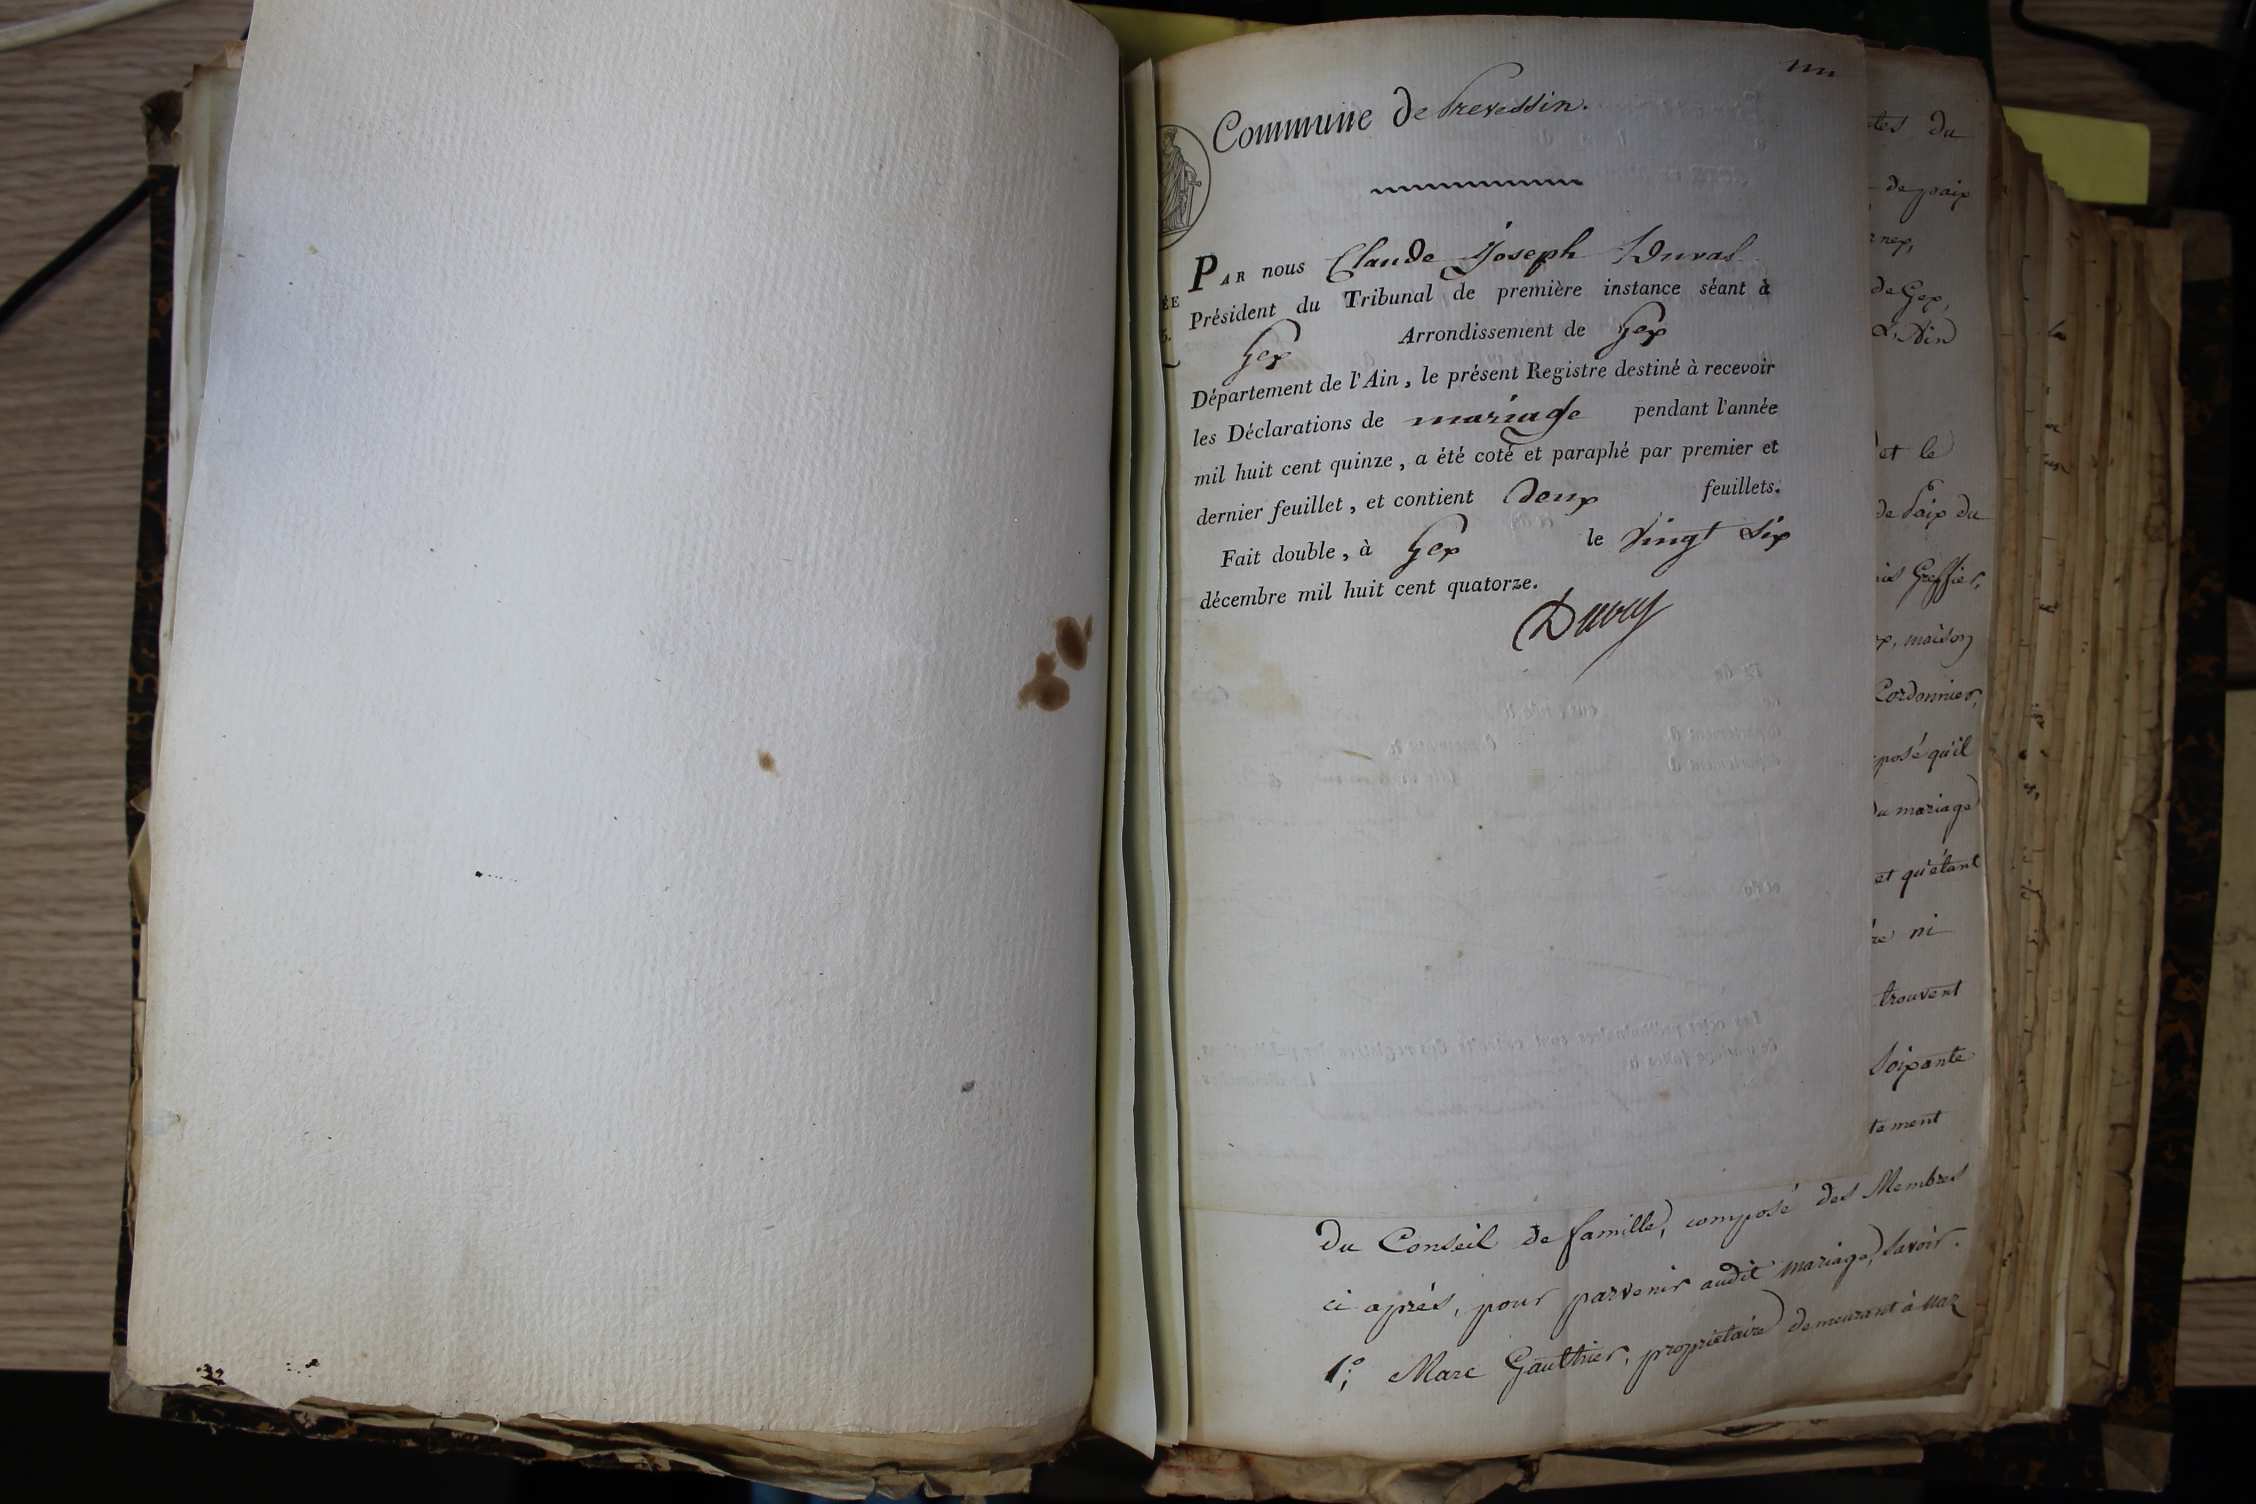 Commune de Prevessin.
PAR nous Claude Joseph Duval
Président du Tribunal de première instance séant à
Gex Arrondissement de Gex
Département de l'Ain, le présent Registre destiné à recevoir
les Déclarations de mariage pendant l'année
mil huit cent quinze, a été coté et paraphé par premier et
dernier feuillet, et contient deux feuillets.
Fait double, à Gex le vingt six
décembre mil huit cent quatorze.
Duval
du Conseil de famille, composé des Membres
ci après, pour parvenir audit mariage, savoir.
1°; Marc Gaulthier, propriétaire demeurant à
tes du
de paix
nex,
de Gex,
L'Ain
et le
de Paix du
Greffier,
maison
Cordonnier,
posé qu'il
mariage
et qu'étant
ni
trouvent
soixante
tement